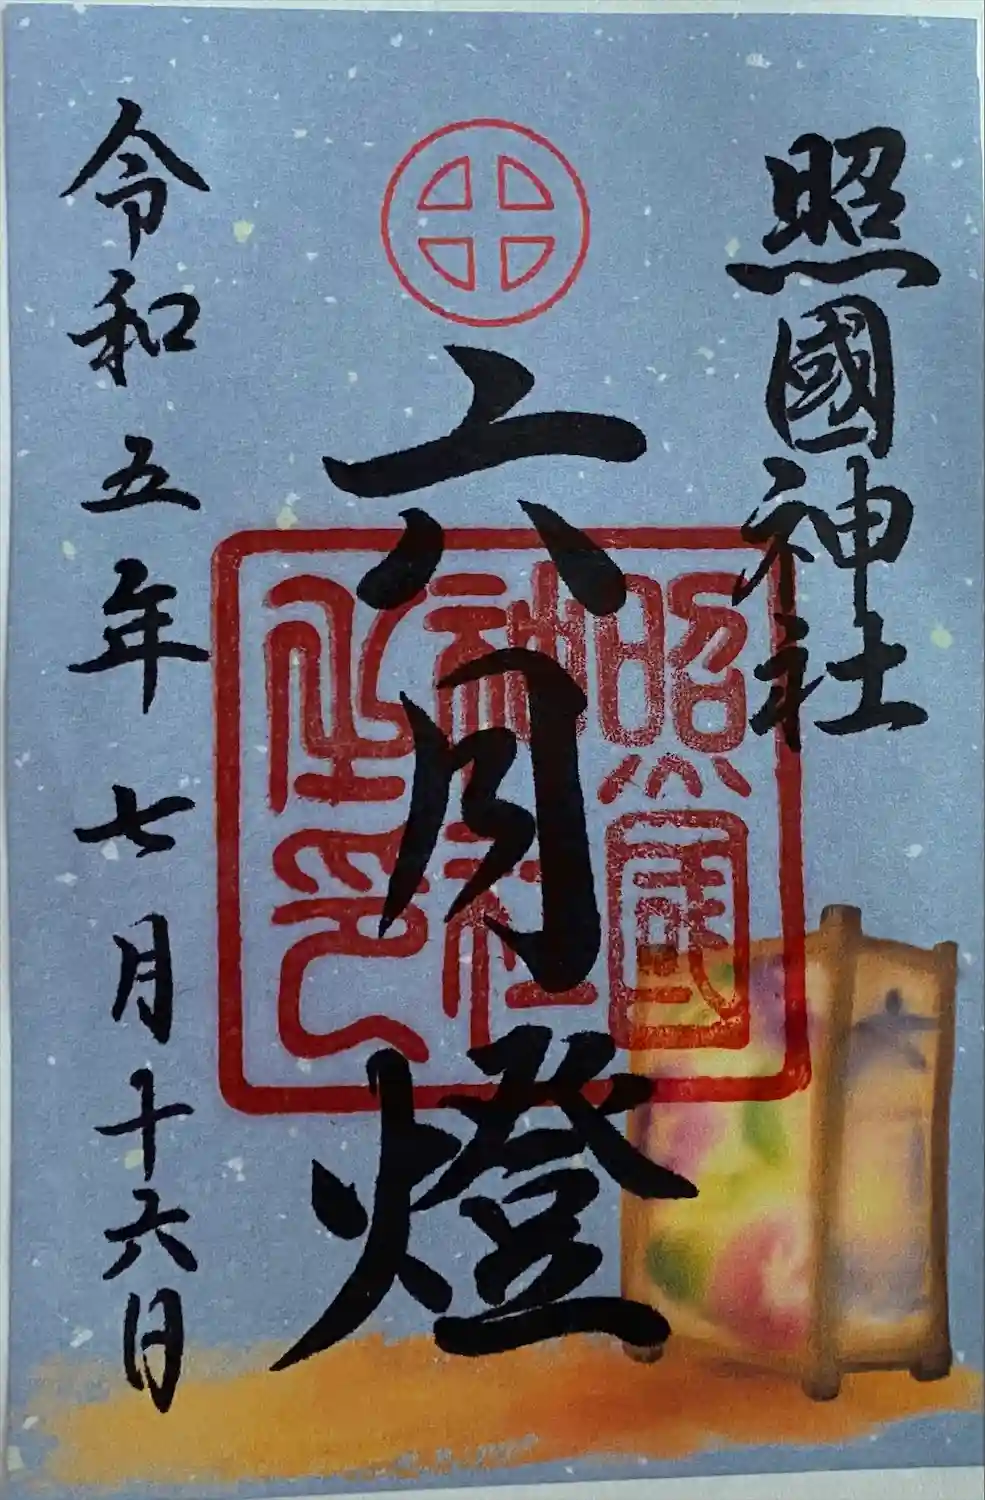 照國神社
六月燈
照國
神社
之印
令和五年七月十六日